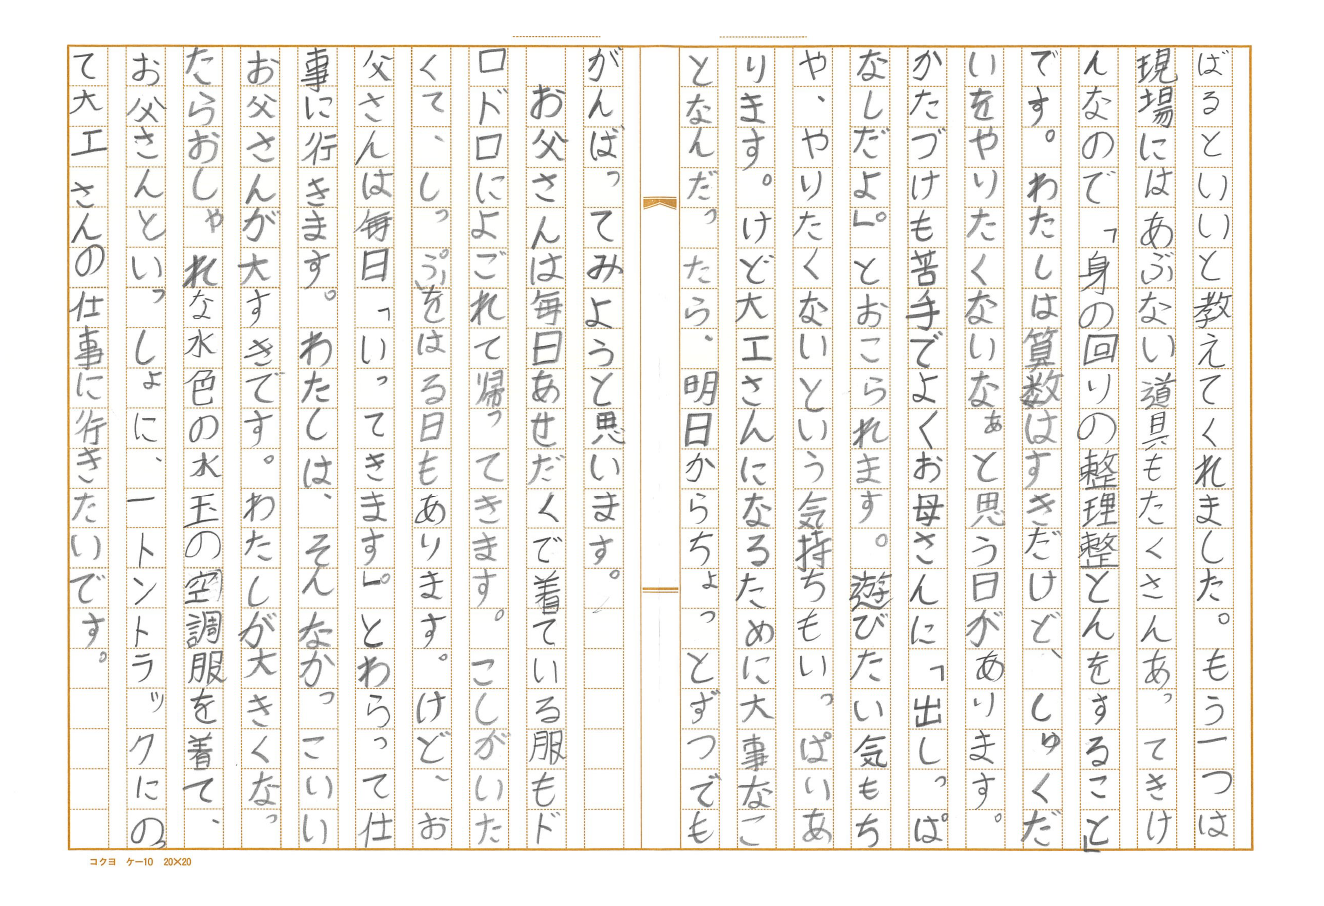 ばるといいと教えてくれました。もう一つは
現場にはあぶない道具もたくさんあってきけ
んなので「身の回りの整理整とんをすること」
です。わたしは算数はすきだけど、しゅくだ
いをやりたくないなぁと思う日があります。
かたづけも苦手でよくお母さんに「出しっぱ
なしだよ」。とおこられます。遊びたい気もち
や、やりたくないという気持ちもいっぱいあ
ります。けど大工さんになるために大事なこ
となんだったら、明日からちょっとずつでも
がんばってみようと思います。
お父さんは毎日あせだくで着ている服もド
ロドロによごれて帰ってきます。こしがいた
くて、しっぷをはる日もあります。けど、お
父さんは毎日「いってきます」。とわらって仕
事に行きます。わたしは、そんなかっこいい
お父さんが大すきです。わたしが大きくなっ
たらおしゃれな水色の水玉の空調服を着て、
お父さんといっしょに、一トントラックにの
て大工さんの仕事に行きたいです。
コクヨ ケー10 20×20